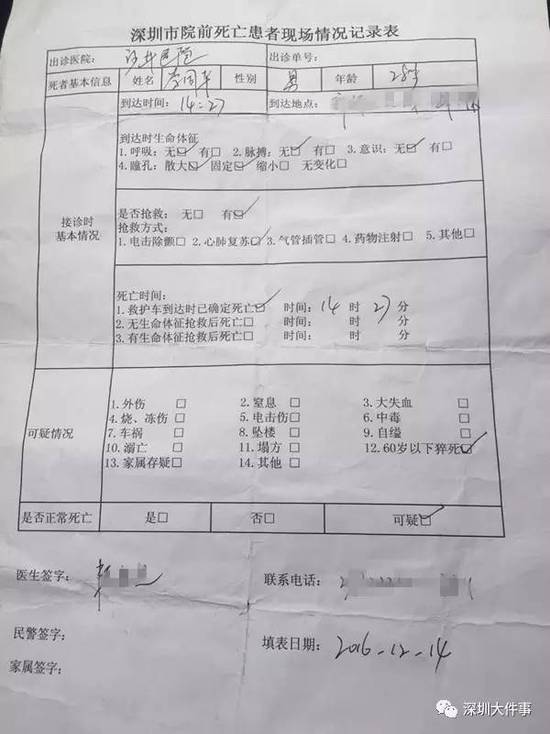 深圳市院前死亡患者现场情况记录表
出诊医院: 沙井医院 出诊单号:
死者基本信息 姓名 李国华 性别 男 年龄 28岁
到达时间: 14:27 到达地点:
接诊时基本情况
到达时生命体征
1.呼吸: 无☑ 有□ 2.脉搏: 无☑ 有□ 3.意识: 无☑ 有□
4.瞳孔: 散大☑ 固定☑ 缩小□ 无变化□
是否抢救: 无□ 有☑
抢救方式:
1.电击除颤□ 2.心肺复苏☑ 3.气管插管□ 4.药物注射□ 5.其他□
死亡时间:
1.救护车到达时已确定死亡☑ 时间: 14 时 27 分
2.无生命体征抢救后死亡□ 时间: 时 分
3.有生命体征抢救后死亡□ 时间: 时 分
可疑情况
1.外伤 □ 2.窒息 □ 3.大失血 □
4.烧、冻伤 □ 5.电击伤□ 6.中毒 □
7.车祸 □ 8.坠楼 □ 9.自缢 □
10.溺亡 □ 11.塌方 □ 12.60岁以下猝死☑
13.家属存疑□ 14.其他 □
是否正常死亡 是□ 否□ 可疑☑
医生签字: 联系电话:
民警签字: 填表日期: 2016-12-14
家属签字:
深圳大件事